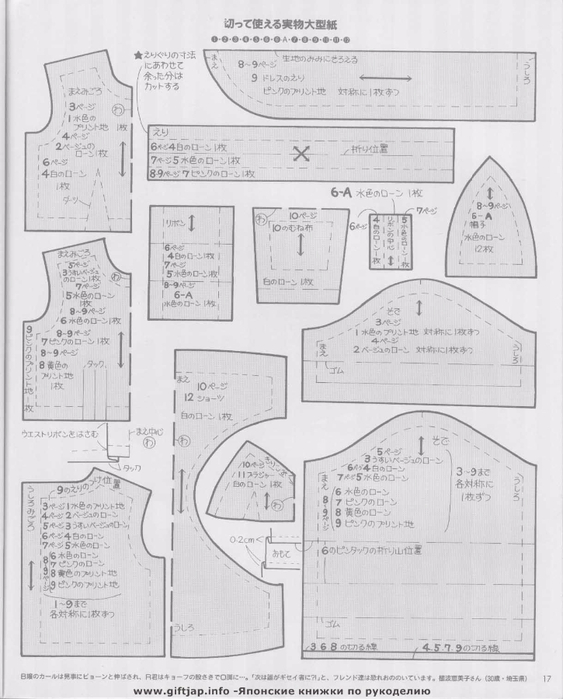 切って使える実物大型紙
1・2・3・4・5・6・6-A・7・8・9・10・11・12
★えりぐりの寸法
にあわせて
余った分は
カットする
まえみごろ
3ページ
1水色の
プリント地 1枚
4ページ
2ベージュの
ローン1枚
6ページ
4白のローン
1枚
ダーツ
わ
まえ
生地のみみにそろえる
8~9ページ
9 ドレスのえり
ピンクのプリント地 対称に1枚ずつ
うしろ
えり
6ページ4白のローン1枚
7ページ5水色のローン1枚
8・9ページ7ピンクのローン1枚
折り位置
6-A 水色のローン1枚
リボン
6ページ
4白のローン1枚
7ページ
5水色のローン1枚
8~9ページ
6-A
水色のローン1枚
わ
10ページ
10のむね布
白のローン1枚
6ページ
7ページ
4白のローン1枚
リボンの中心
5水色のローン1枚
8~9ページ
6-A
帽子
水色のローン
12枚
まえみごろ
5ページ
3うすいベージュ
のローン1枚
7ページ
5水色のローン
1枚
8~9ページ
6水色のローン1枚
8~9ページ
7ピンクのローン1枚
8~9ページ
8黄色の
プリント地
1枚
タック
9ピンクのプリント地1枚
わ
そで
3ページ
1水色のプリント地 対称に1枚ずつ
4ページ
2ベージュのローン 対称に1枚ずつ
まえ
うしろ
ゴム
まえ
10ページ
12ショーツ
白のローン1枚
わ
うしろ
ウエストリボンをはさむ
まえ中心
わ
タック
10ページ
11ブラジャー
白のローン1枚
わ
0.2cm
おもて
9のえりのつけ位置
うしろみごろ
3ページ1水色のプリント地
4ページ2ベージュのローン
5ページ3うすいベージュのローン
6ページ4白のローン
7ページ5水色のローン
6水色のローン
7ピンクのローン
8黄色のプリント地
9ピンクのプリント地
1~9まで
各対称に1枚ずつ
そで
5ページ
3うすいベージュのローン
6ページ4白のローン
7ページ5水色のローン
6水色のローン
7ピンクのローン
8黄色のローン
9ピンクのプリント地
3~9まで
各対称に
1枚ずつ
まえ
うしろ
6のピンタックの折り山位置
ゴム
3.6.8の切る線
4.5.7.9の切る線
17
www.giftjap.info -Японские книжки по рукоделию